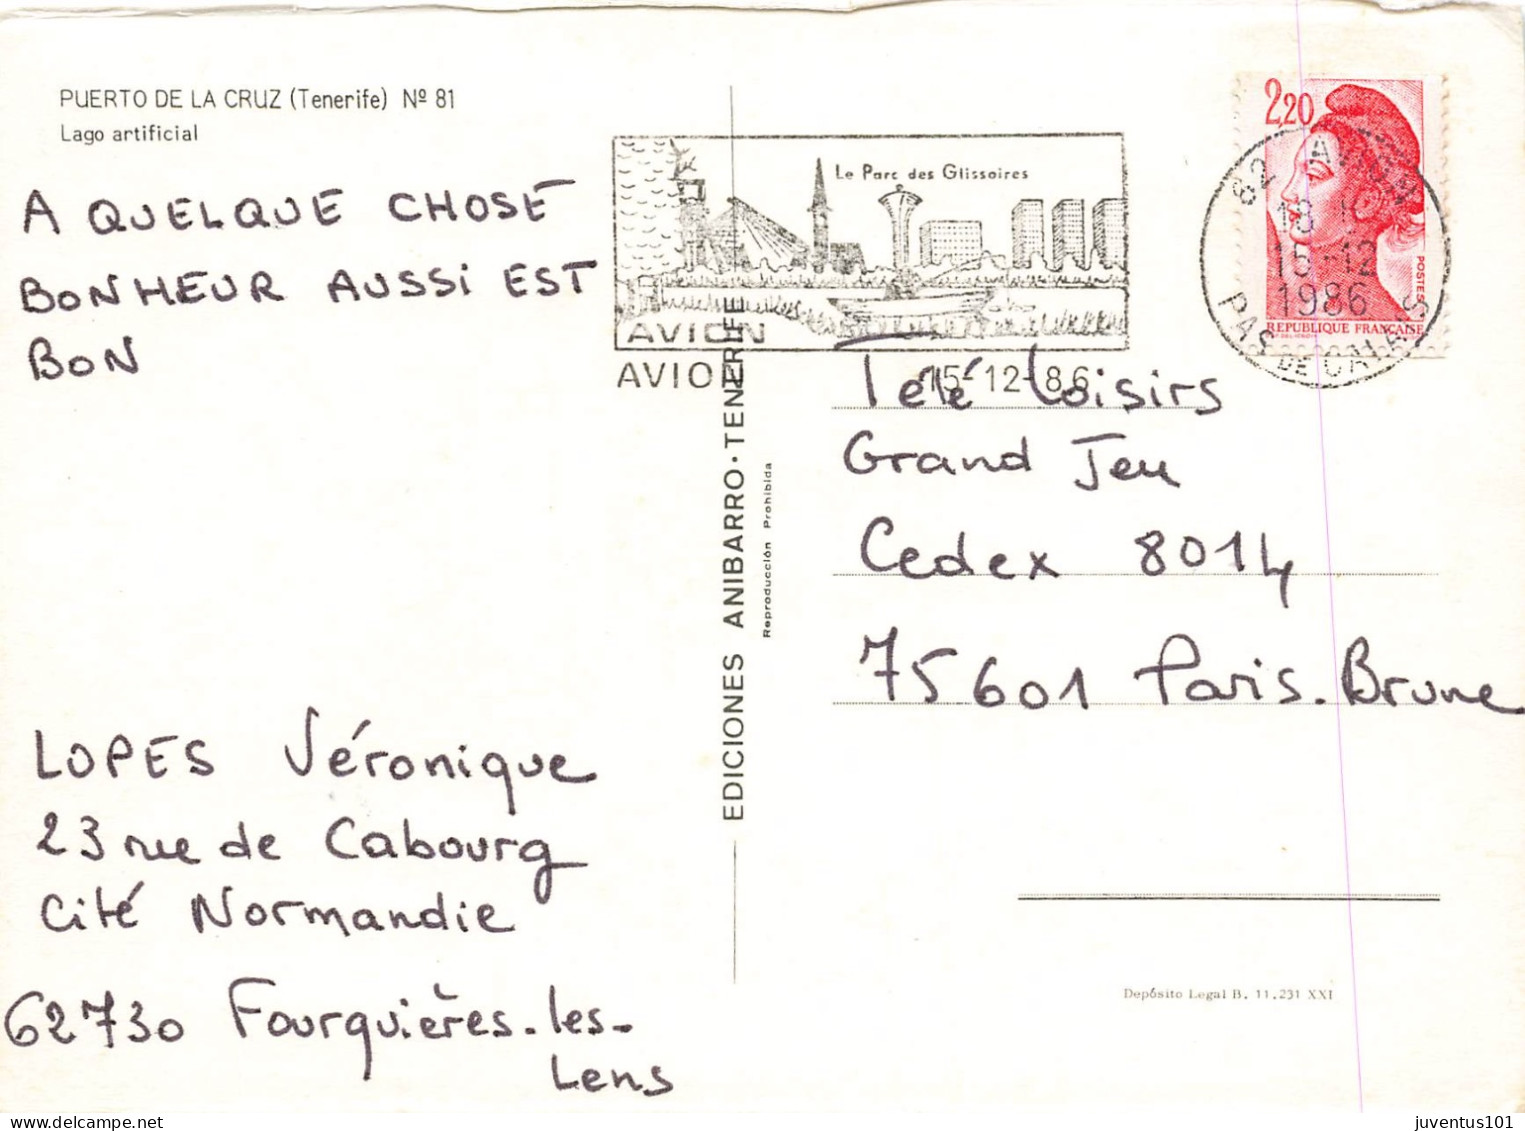 PUERTO DE LA CRUZ (Tenerife) Nº 81
Lago artificial
A QUELQUE CHOSE
BONHEUR AUSSI EST
BON
LOPES Véronique
23 rue de Cabourg
Cité Normandie
62730 Fourquières-les-
Lens
Le Parc des Glissoires
AVION
AVION
15-12-86
EDICIONES ANIBARRO·TENERIFE
Reproducción Prohibida
2,20
POSTES
REPUBLIQUE FRANÇAISE
62 AVION
15-12
1986
PAS DE CALAIS
Télé Loisirs
Grand Jeu
Cedex 8014
75601 Paris.Brune
Depósito Legal B. 11.231 XXI
juventus101